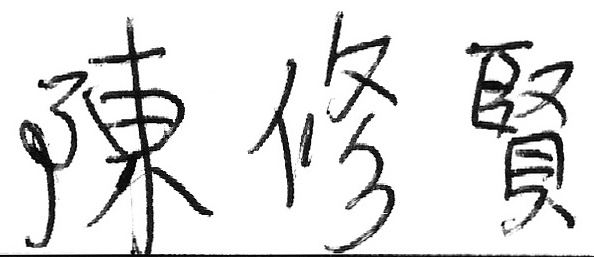 陳修賢